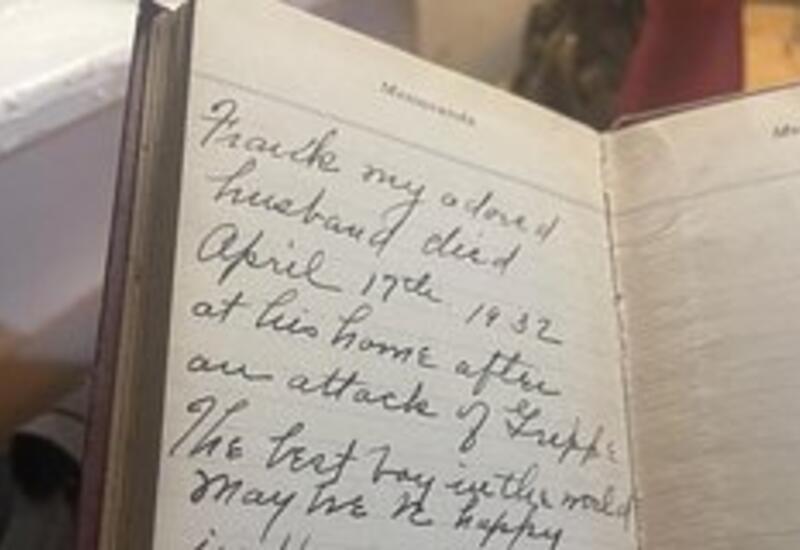 Memoranda
Frank my adored
husband died
April 17th 1932
at his home after
an attack of Grippe
The best boy in the world
May he be happy
in